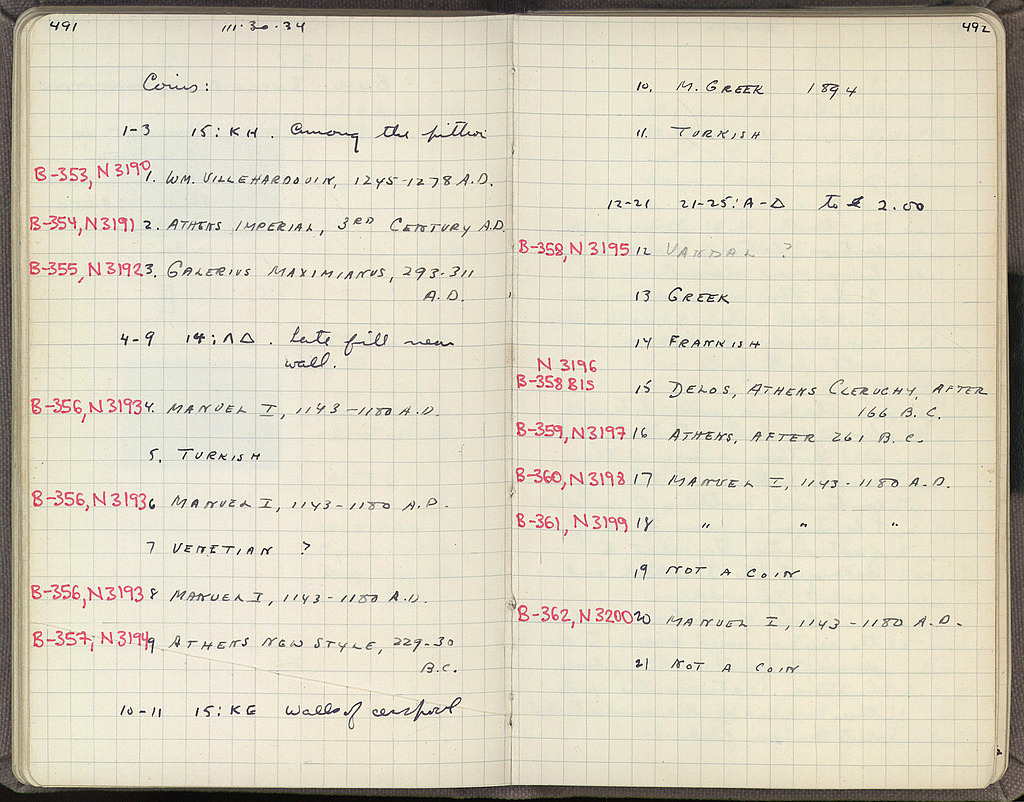 491
111·30·34
Coins:
1-3 15: KH. Among the pithoi
B-353, N3190 1. WM. VILLEHARDOUIN, 1245-1278 A.D.
B-354, N3191 2. ATHENS IMPERIAL, 3RD CENTURY A.D.
B-355, N3192 3. GALERIUS MAXIMIANUS, 293-311
A.D.
4-9 14: ΛΔ. Late fill near
wall.
B-356, N3193 4. MANUEL I, 1143-1180 A.D.
5. TURKISH
B-356, N3193 6 MANUEL I, 1143-1180 A.D.
7 VENETIAN ?
B-356, N3193 8 MANUEL I, 1143-1180 A.D.
B-357, N3194 9 ATHENS NEW STYLE, 229-30
B.C.
10-11 15: KE Walls of cesspool
492
10. M. GREEK 1894
11. TURKISH
12-21 21-25: A-Δ to 2.00
B-358, N3195 12 VANDAL ?
13 GREEK
14 FRANKISH
N 3196
B-358 BIS 15 DELOS, ATHENS CLERUCHY, AFTER
166 B.C.
B-359, N3197 16 ATHENS, AFTER 261 B.C.
B-360, N3198 17 MANUEL I, 1143-1180 A.D.
B-361, N3199 18 " " "
19 NOT A COIN
B-362, N3200 20 MANUEL I, 1143-1180 A.D.
21 NOT A COIN